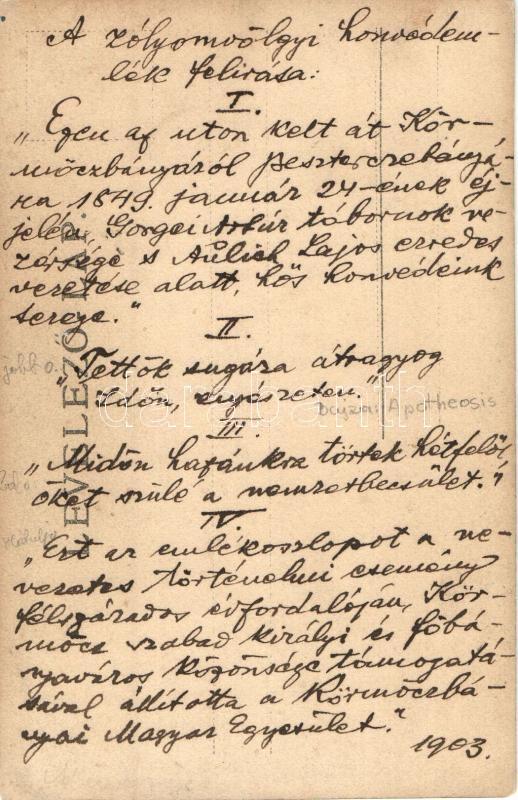 A zólyomvölgyi honvédem-
lék felirása:
I.
„Ezen az uton kelt át Kör-
möczbányáról Beszterczebányá-
ra 1849. január 24-ének éj-
jelén, Görgei Artúr tábornok ve-
zérsége s Aulich Lajos ezredes
vezetése alatt, hős honvédeink
serege."
II.
„Tettök sugára átragyog
időn, enyészeten."
Dayka: Apotheosis
III.
„Midőn hazánkra törtek kétfelől
őket szülé a nemzetbecsület."
IV.
„Ezt az emlékoszlopot a ne-
vezetes történelmi esemény
félszázados évfordulóján, Kör-
möcz szabad királyi és főbá-
nyaváros közönsége támogatá-
sával állította a Körmöczbá-
nyai Magyar Egyesület."
1903.
LEVELEZŐ-LAP.
jobb o.
bal o.
Hátulja
darabanth